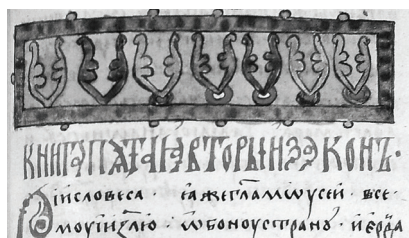 КНИГА ПѦТАꙖ ВТОРЫИ ЗАКОНЪ·
Сїисловеса · ꙗжегл҃амѡѵсеи · все-
моуїиз҃лю · ѡбонѹстранꙋ · иерда